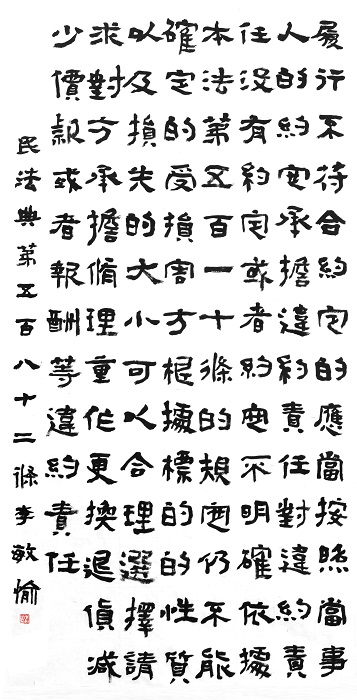 履行不待合約定的應當按照當事
人的約定承擔違約責任對違約責
任没有約定或者約定不明確依據
本法第五百一十條的規定仍不能
確定的受損害方根據標的的性質
以及損失的大小可以合理選擇請
求對方承擔脩理重作更換退貨減
少價款或者報酬等違約責任
民法典第五百八十二條李敏愉